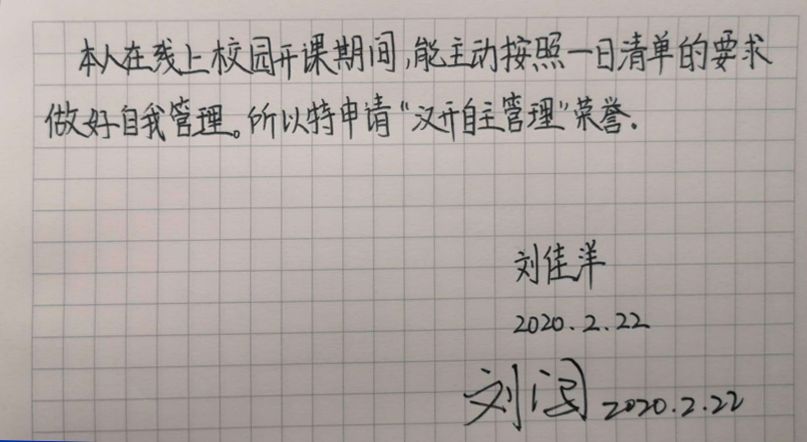 本人在线上校园开课期间,能主动按照一日清单的要求
做好自我管理。所以特申请“汉开自主管理”荣誉.
刘佳洋
2020.2.22
刘 2020.2.22